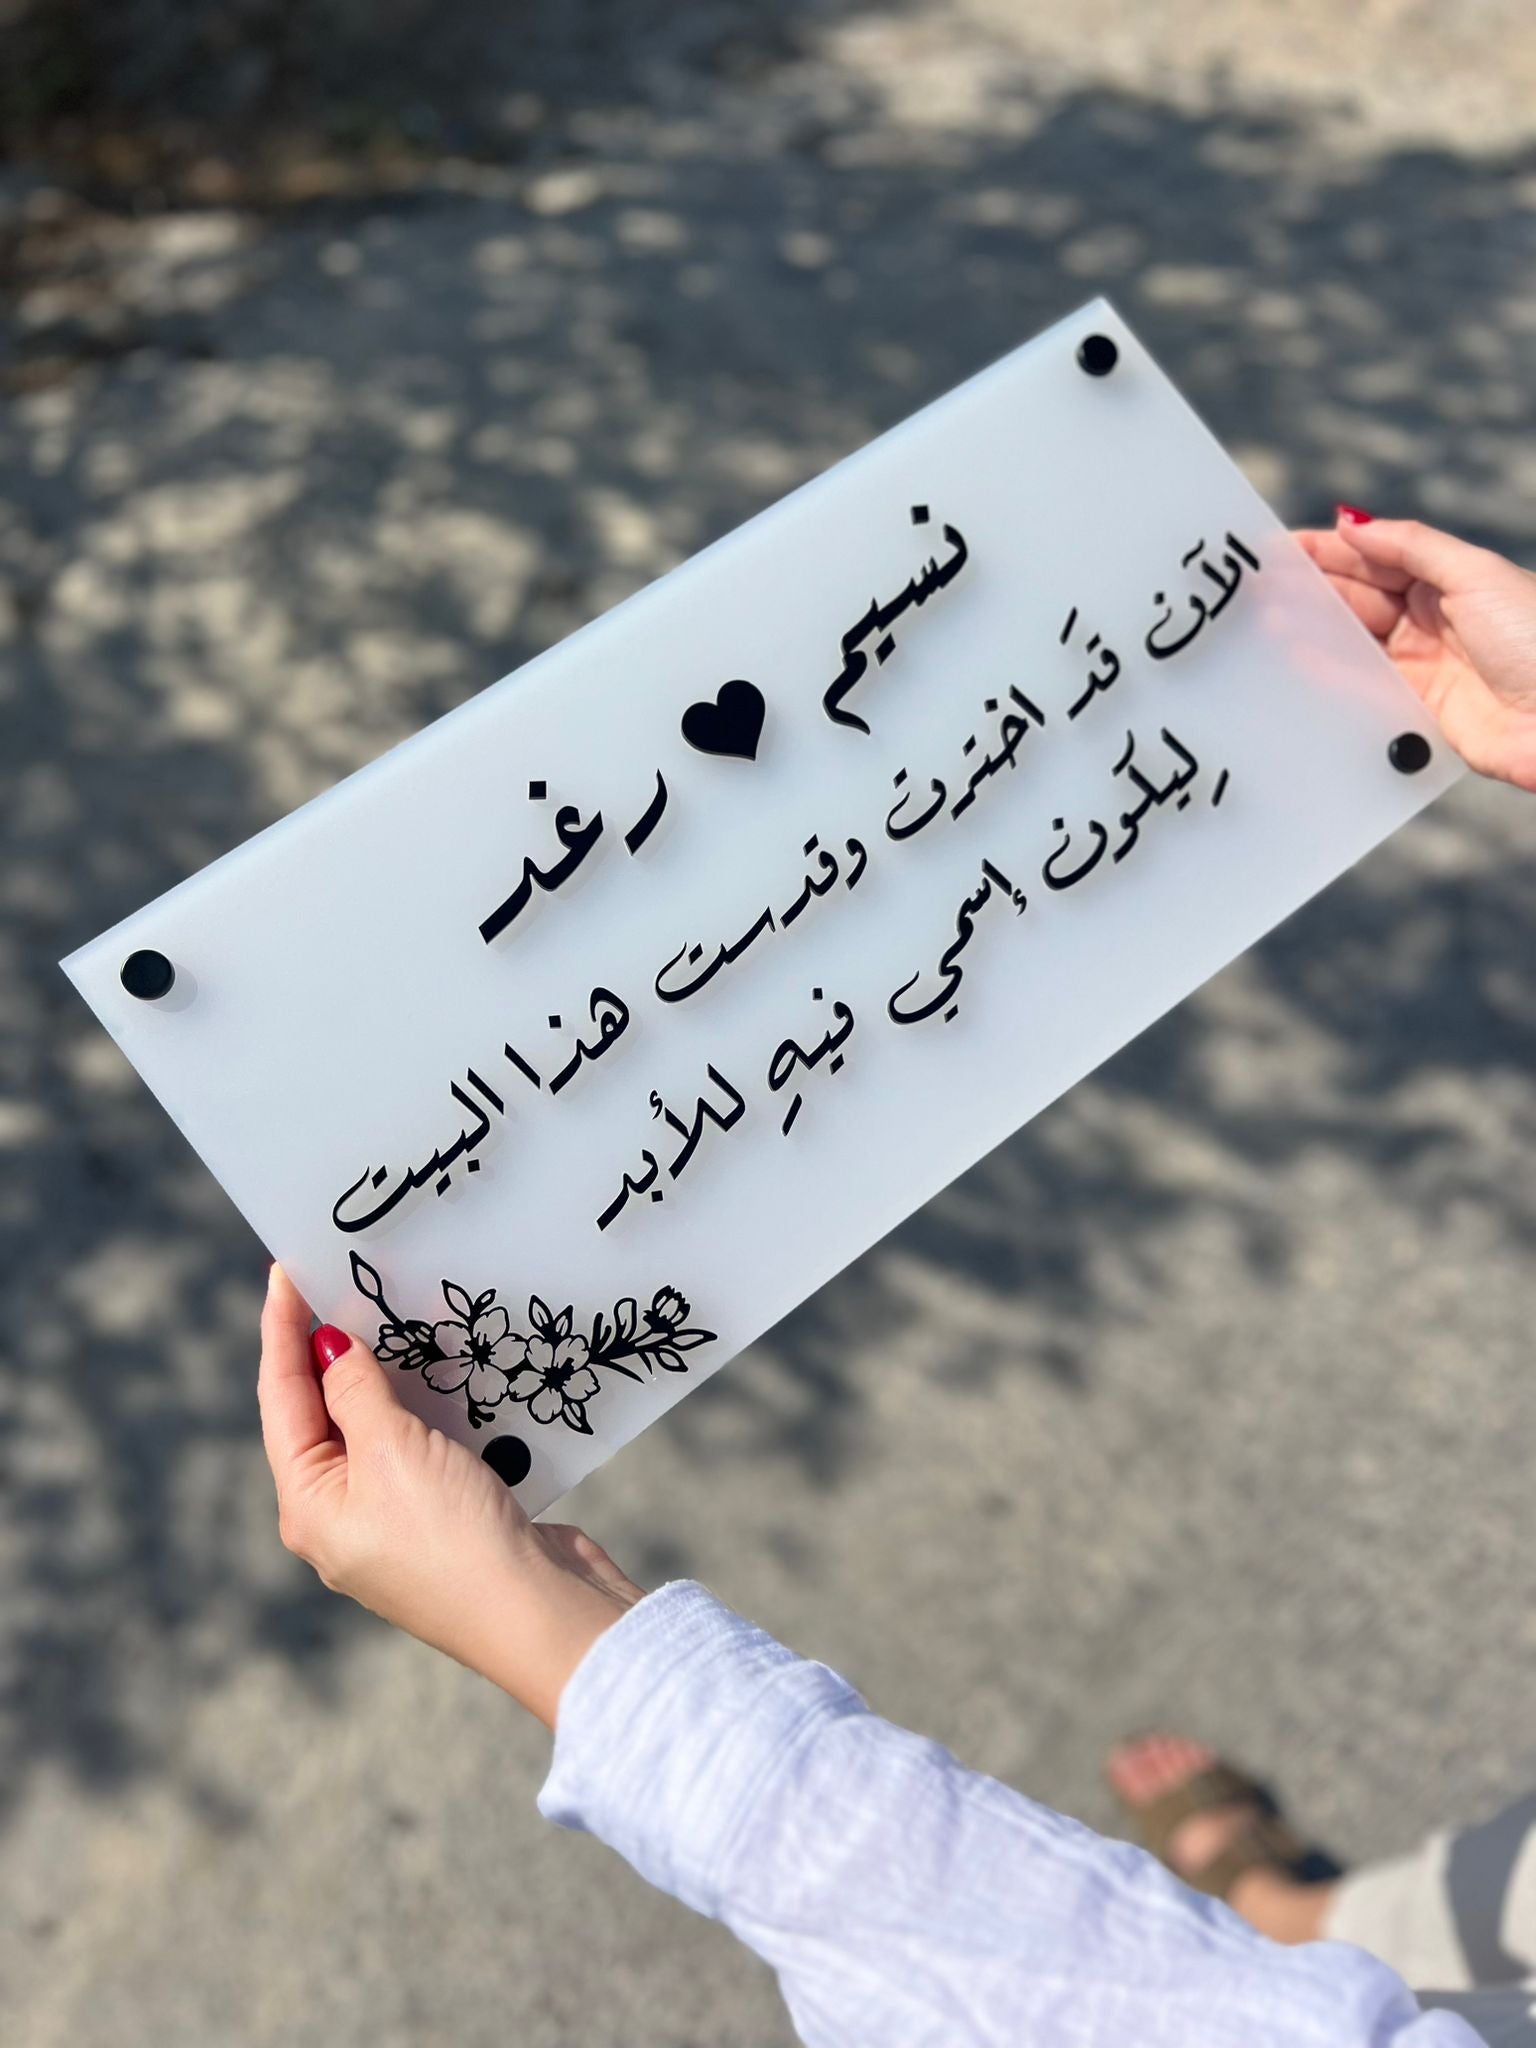 نسيم ♥ رغد
الآن قَد اخترت وقدست هذا البيت
لِيكون إسمي فيهِ للأبد